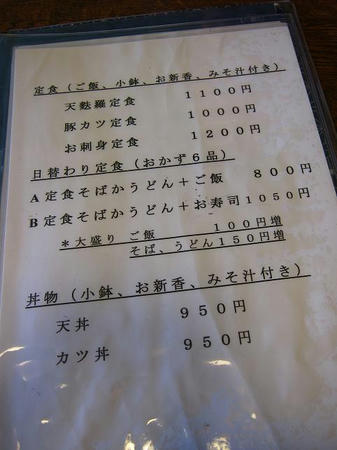 定食（ご飯、小鉢、お新香、みそ汁付き）
天麩羅定食　１１００円
豚カツ定食　１０００円
お刺身定食　１２００円
日替わり定食（おかず６品）
A定食そばかうどん＋ご飯　８００円
B定食そばかうどん＋お寿司１０５０円
＊大盛り　ご飯　１００円増
そば、うどん１５０円増
丼物（小鉢、お新香、みそ汁付き）
天丼　９５０円
カツ丼　９５０円